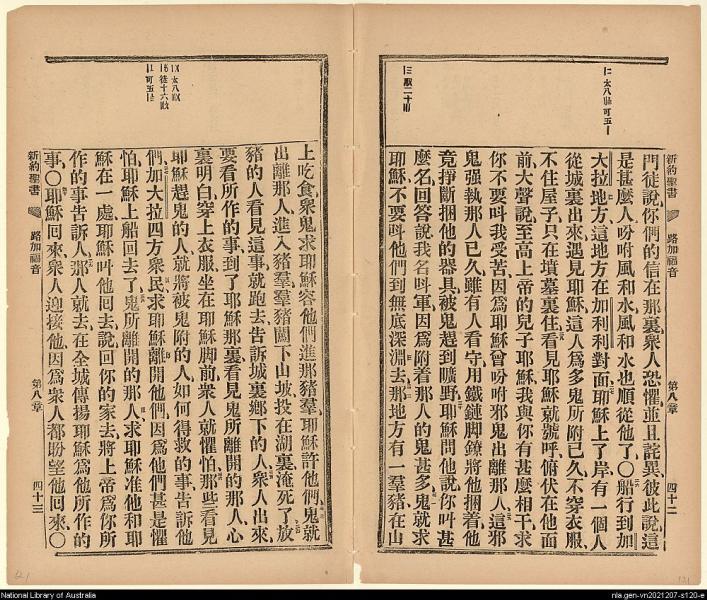 新約聖書
路加福音
第八章
四十二
門徒說、你們的信在那裏、衆人恐懼、並且詫異、彼此說、這
是甚麼人、吩咐風和水、風和水也順從他了、〇船行到加
大拉地方、這地方在加利利對面、耶穌上了岸、有一個人
從城裏出來、遇見耶穌、這人爲多鬼所附已久、不穿衣服、
不住屋子、只在墳墓裏住、看見耶穌、就號呼俯伏在他面
前、大聲說、至高上帝的兒子耶穌、我與你有甚麼相干、求
你不要叫我受苦、因爲耶穌曾吩咐邪鬼出離那人、這邪
鬼強執那人已久、雖有人看守、用鐵鏈脚鐐將他捆着、他
竟掙斷捆他的器具、被鬼趕到曠野、耶穌問他說、你叫甚
麼名、回答說、我名叫軍、因爲附着那人的鬼甚多、鬼就求
耶穌不要叫他們到無底深淵去、那地方有一羣豬在山
上吃食、衆鬼求耶穌容他們進那豬羣、耶穌許他們、鬼就
出離那人、進入豬羣、羣豬闖下山坡、投在湖裏淹死了、放
豬的人看見這事、就跑去告訴城裏鄉下的人、衆人出來
要看所作的事、到了耶穌那裏、看見鬼所離開的那人、心
裏明白、穿上衣服、坐在耶穌脚前、衆人就懼怕、那些看見
耶穌趕鬼的人、就將被鬼附的人、如何得救的事、告訴他
們、加大拉四方衆民、求耶穌離開他們、因爲他們甚是懼
怕、耶穌上船回去了、鬼所離開的那人、求耶穌准他和耶
穌在一處、耶穌叫他回去、說、回你的家去、將上帝爲你所
作的事告訴人、那人就去、在全城傳揚耶穌爲他所作的
事、〇耶穌回來、衆人迎接他、因爲衆人都盼望他回來、〇
新約聖書
路加福音
第八章
四十三
National Library of Australia
nla.gen-vn2021207-s120-e